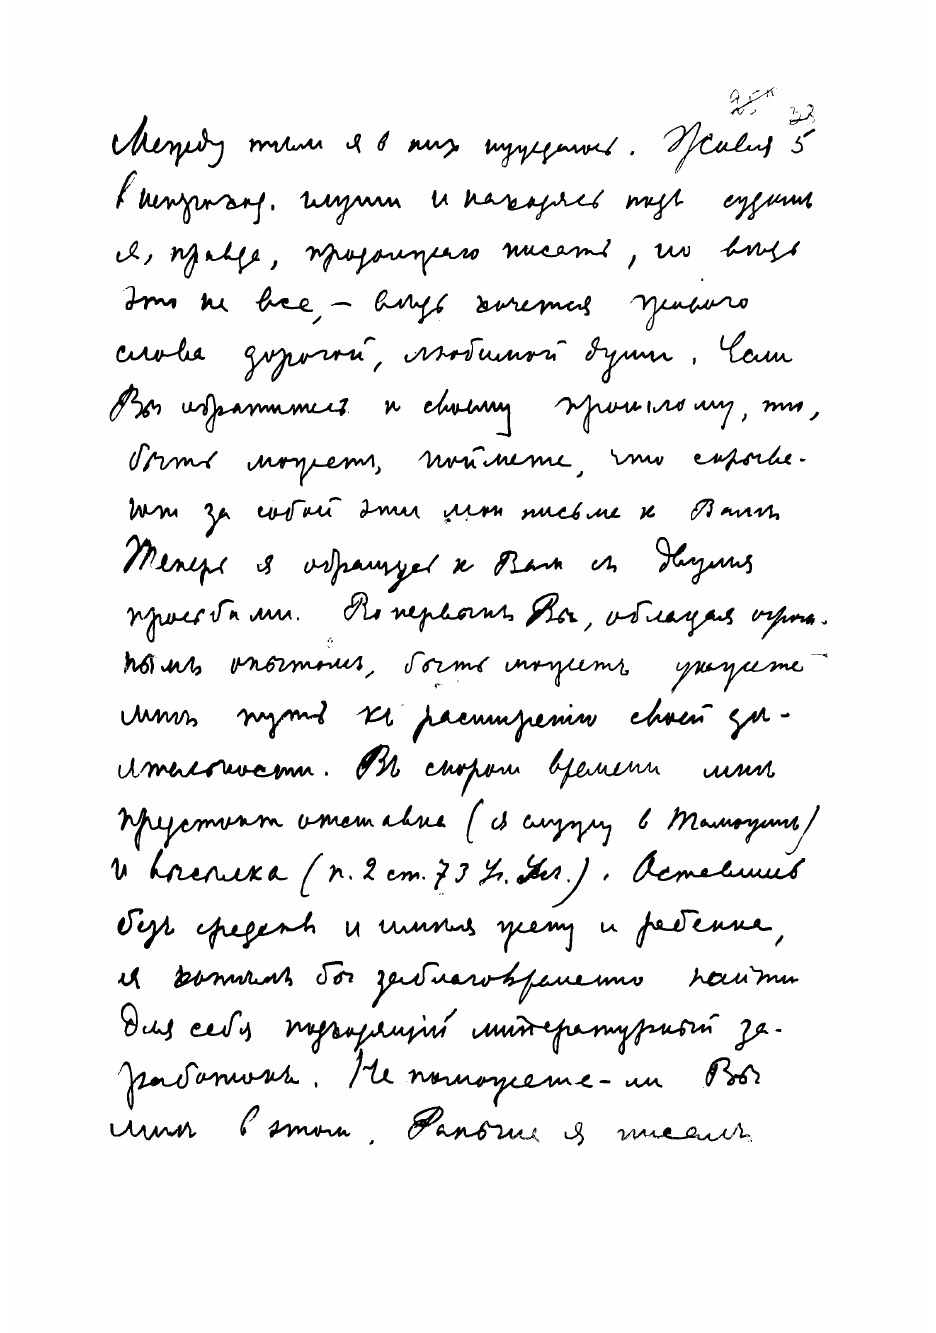 33
Между тем я в них нуждаюсь. Живя 5
в непроход. глуши и находясь подъ судомъ
я, правда, продолжаю писать, но ведь
это не все, – ведь хочется живого
слова дорогой, любимой души. Если
Вы обратитесь к своему прошлому, то,
быть можетъ, поймете, что скрыва-
ют за собой эти мои письма к Вамъ
Теперь я обращусь к Вам съ двумя
просьбами. Во первыхъ Вы, обладая огром-
нымъ опытомъ, быть можетъ укажете
мнѣ путь къ расширенію своей дѣ-
ятельности. Въ скором времени мнѣ
предстоит отставка (я служу в Таможнѣ)
и высылка (п. 2 ст. 73 Уг. Ул.). Оставшись
безъ средствъ и имѣя жену и ребенка,
я хотѣлъ бы заблаговременно найти
для себя подходящій литературный за-
работокъ. Не поможете-ли Вы
мнѣ в этом. Раньше я писалъ